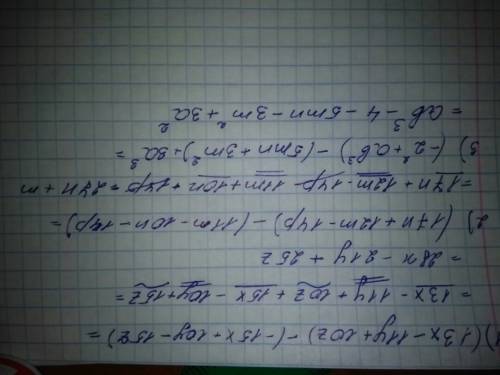 1) (13x - 11y + 10z) - (-15x + 10y - 15z) =
= 13x - 11y + 10z + 15x - 10y + 15z =
= 28x - 21y + 25z
2) (17n + 12m - 14p) - (11m - 10n - 14p) =
= 17n + 12m - 14p - 11m + 10n + 14p = 27n + m
3) (-2² + ab³) - (5mn + 3m²) + 3a² =
= ab³ - 4 - 5mn - 3m² + 3a²